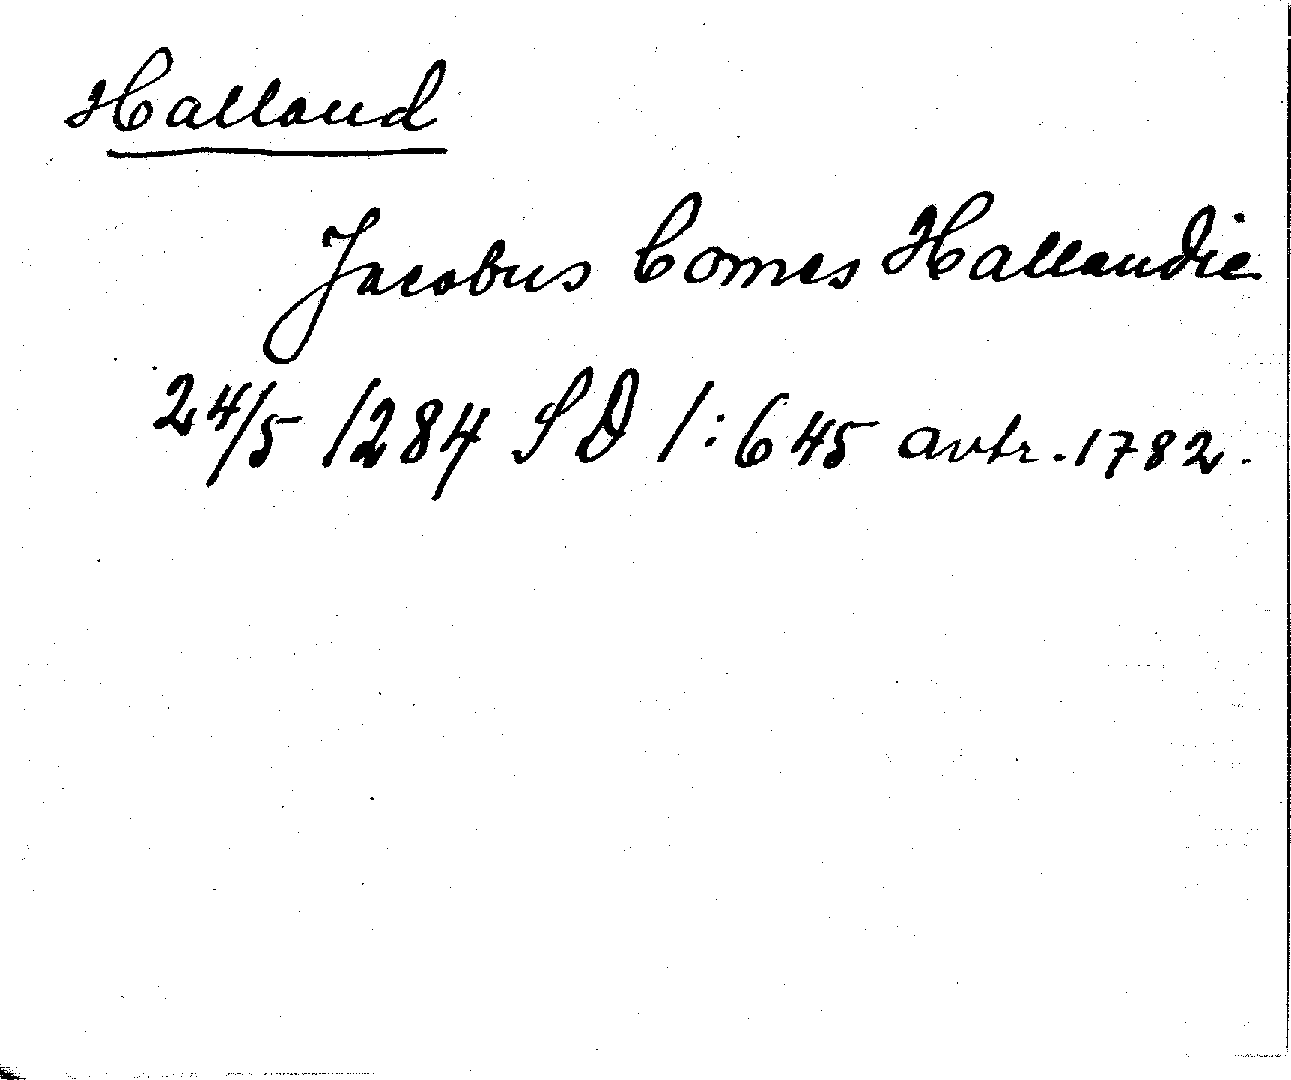 Halland
Jacobus Comes Hallandie
24/5 1284 SD 1:645 avtr. 1782.